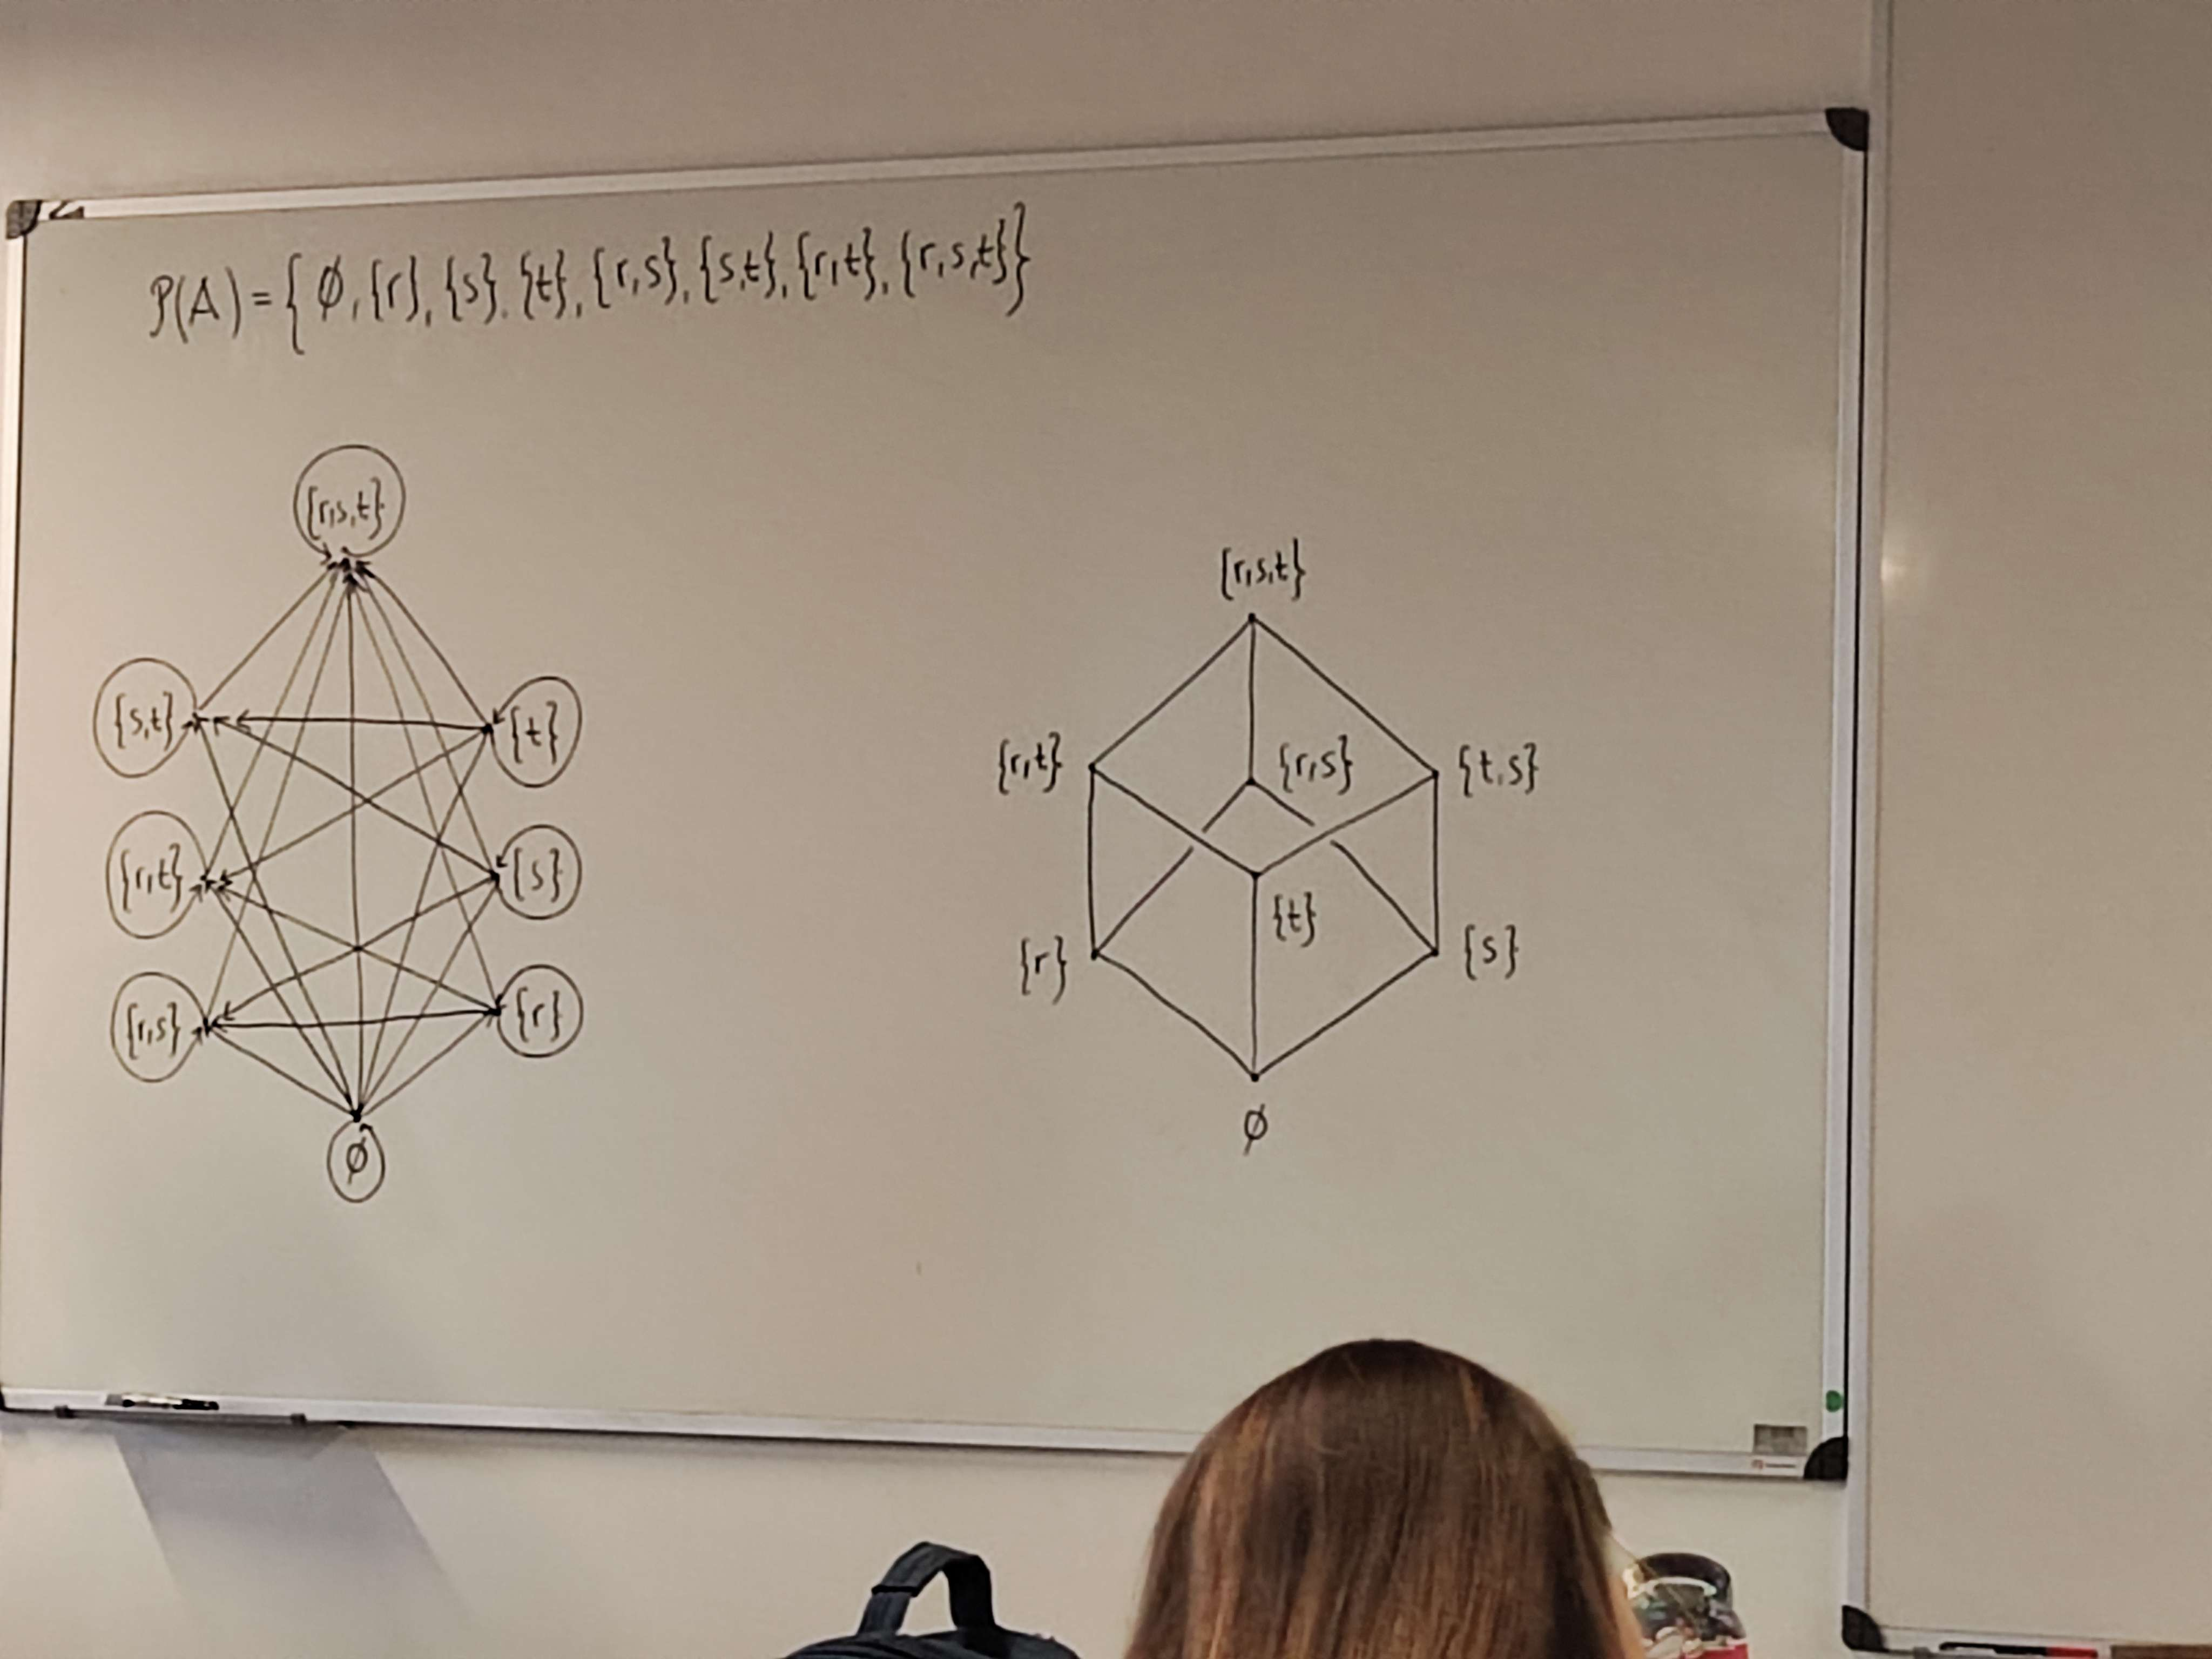 P(A) = { ∅, {r}, {s}, {t}, {r,s}, {s,t}, {r,t}, {r,s,t}}
{r,s,t}
{s,t} {t}
{r,t} {s}
{r,s} {r}
∅
{r,s,t}
{r,t} {r,s} {t,s}
{t}
{r} {s}
∅